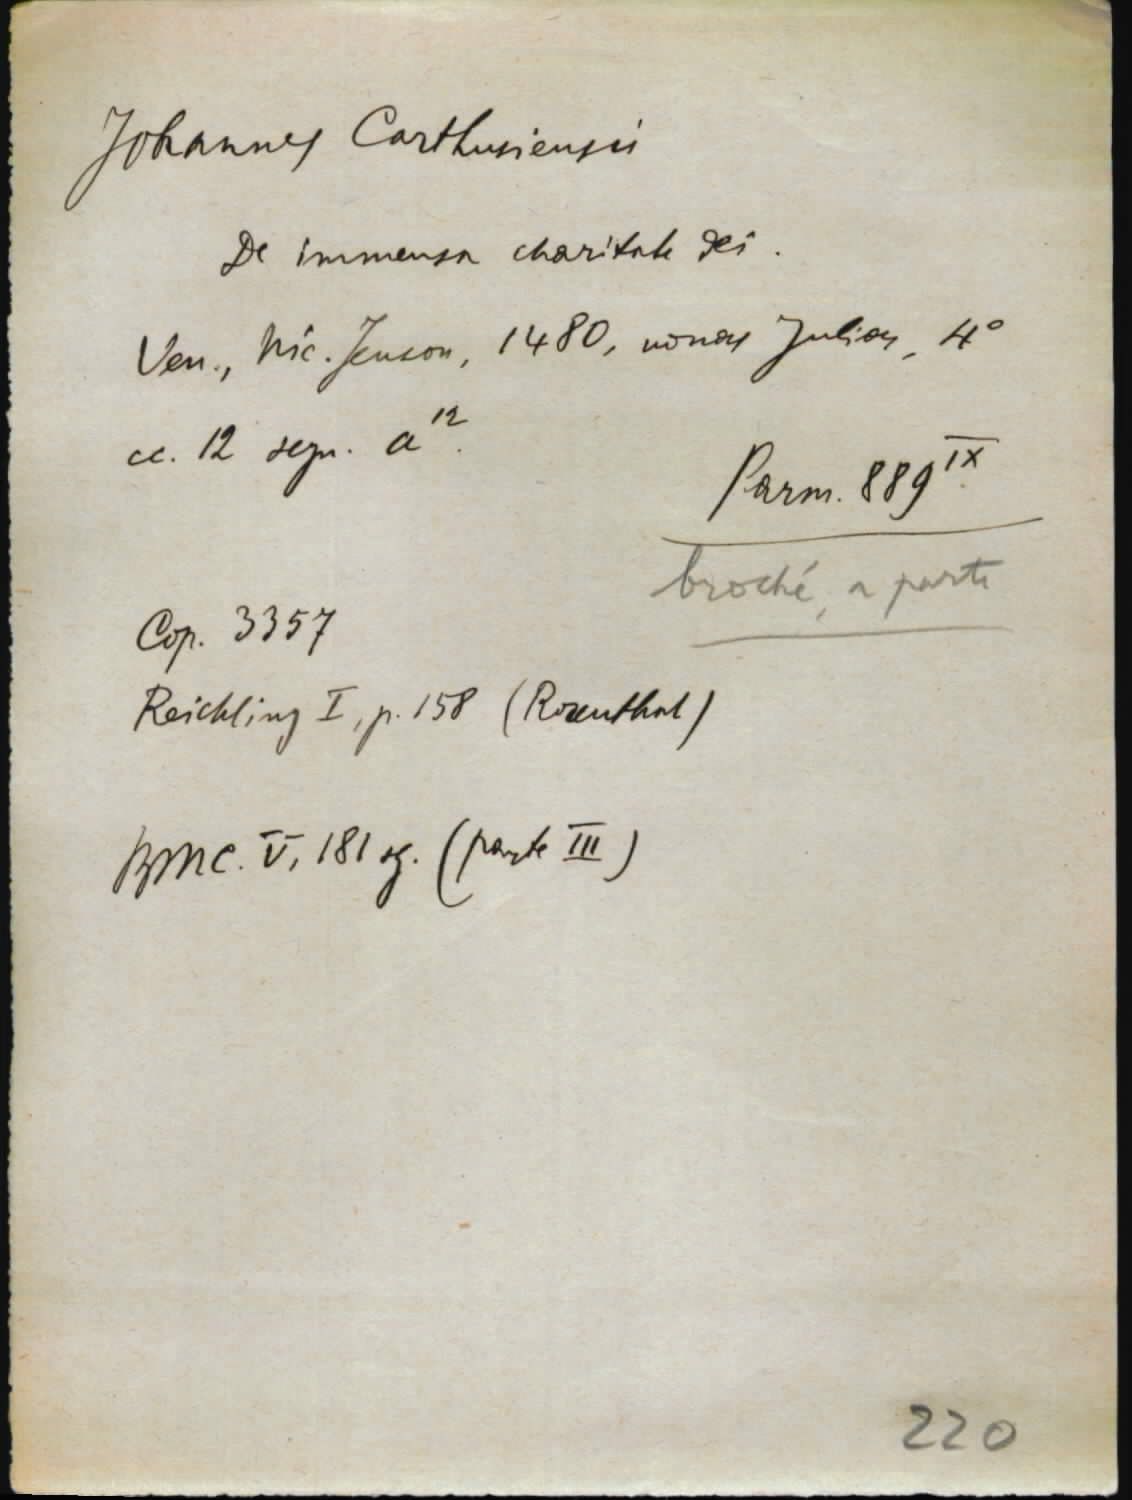 Johannes Carthusiensis
De immensa charitate dei.
Ven., Nic. Jenson, 1480, nonas Julias, 4°
cc. 12 segn. a¹².
Parm. 889 IX.
broché, a parte
Cop. 3357
Reichling I, p. 158 (Rosenthal)
BMC. V, 181 sg. (parte III)
220